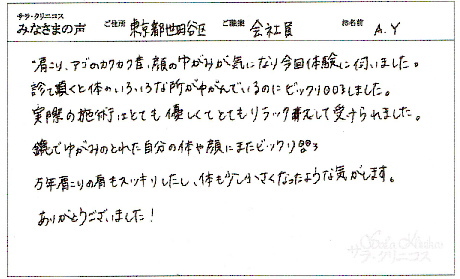 サラ・クリニコス
みなさまの声 ご住所 東京都世田谷区 ご職業 会社員 お名前 A.Y
"肩こり、アゴのカクカク音、顔のゆがみが気になり今回体験に伺いました。
診て頂くと体のいろいろな所がゆがんでいるのにビックリしました。
実際の施術はとても優しくてとてもリラックスして受けられました。
鏡でゆがみのとれた自分の体や顔にまたビックリ
万年肩こりの肩もスッキリしたし、体も少し小さくなったような気がします。
ありがとうございました!
サラ・クリニコス